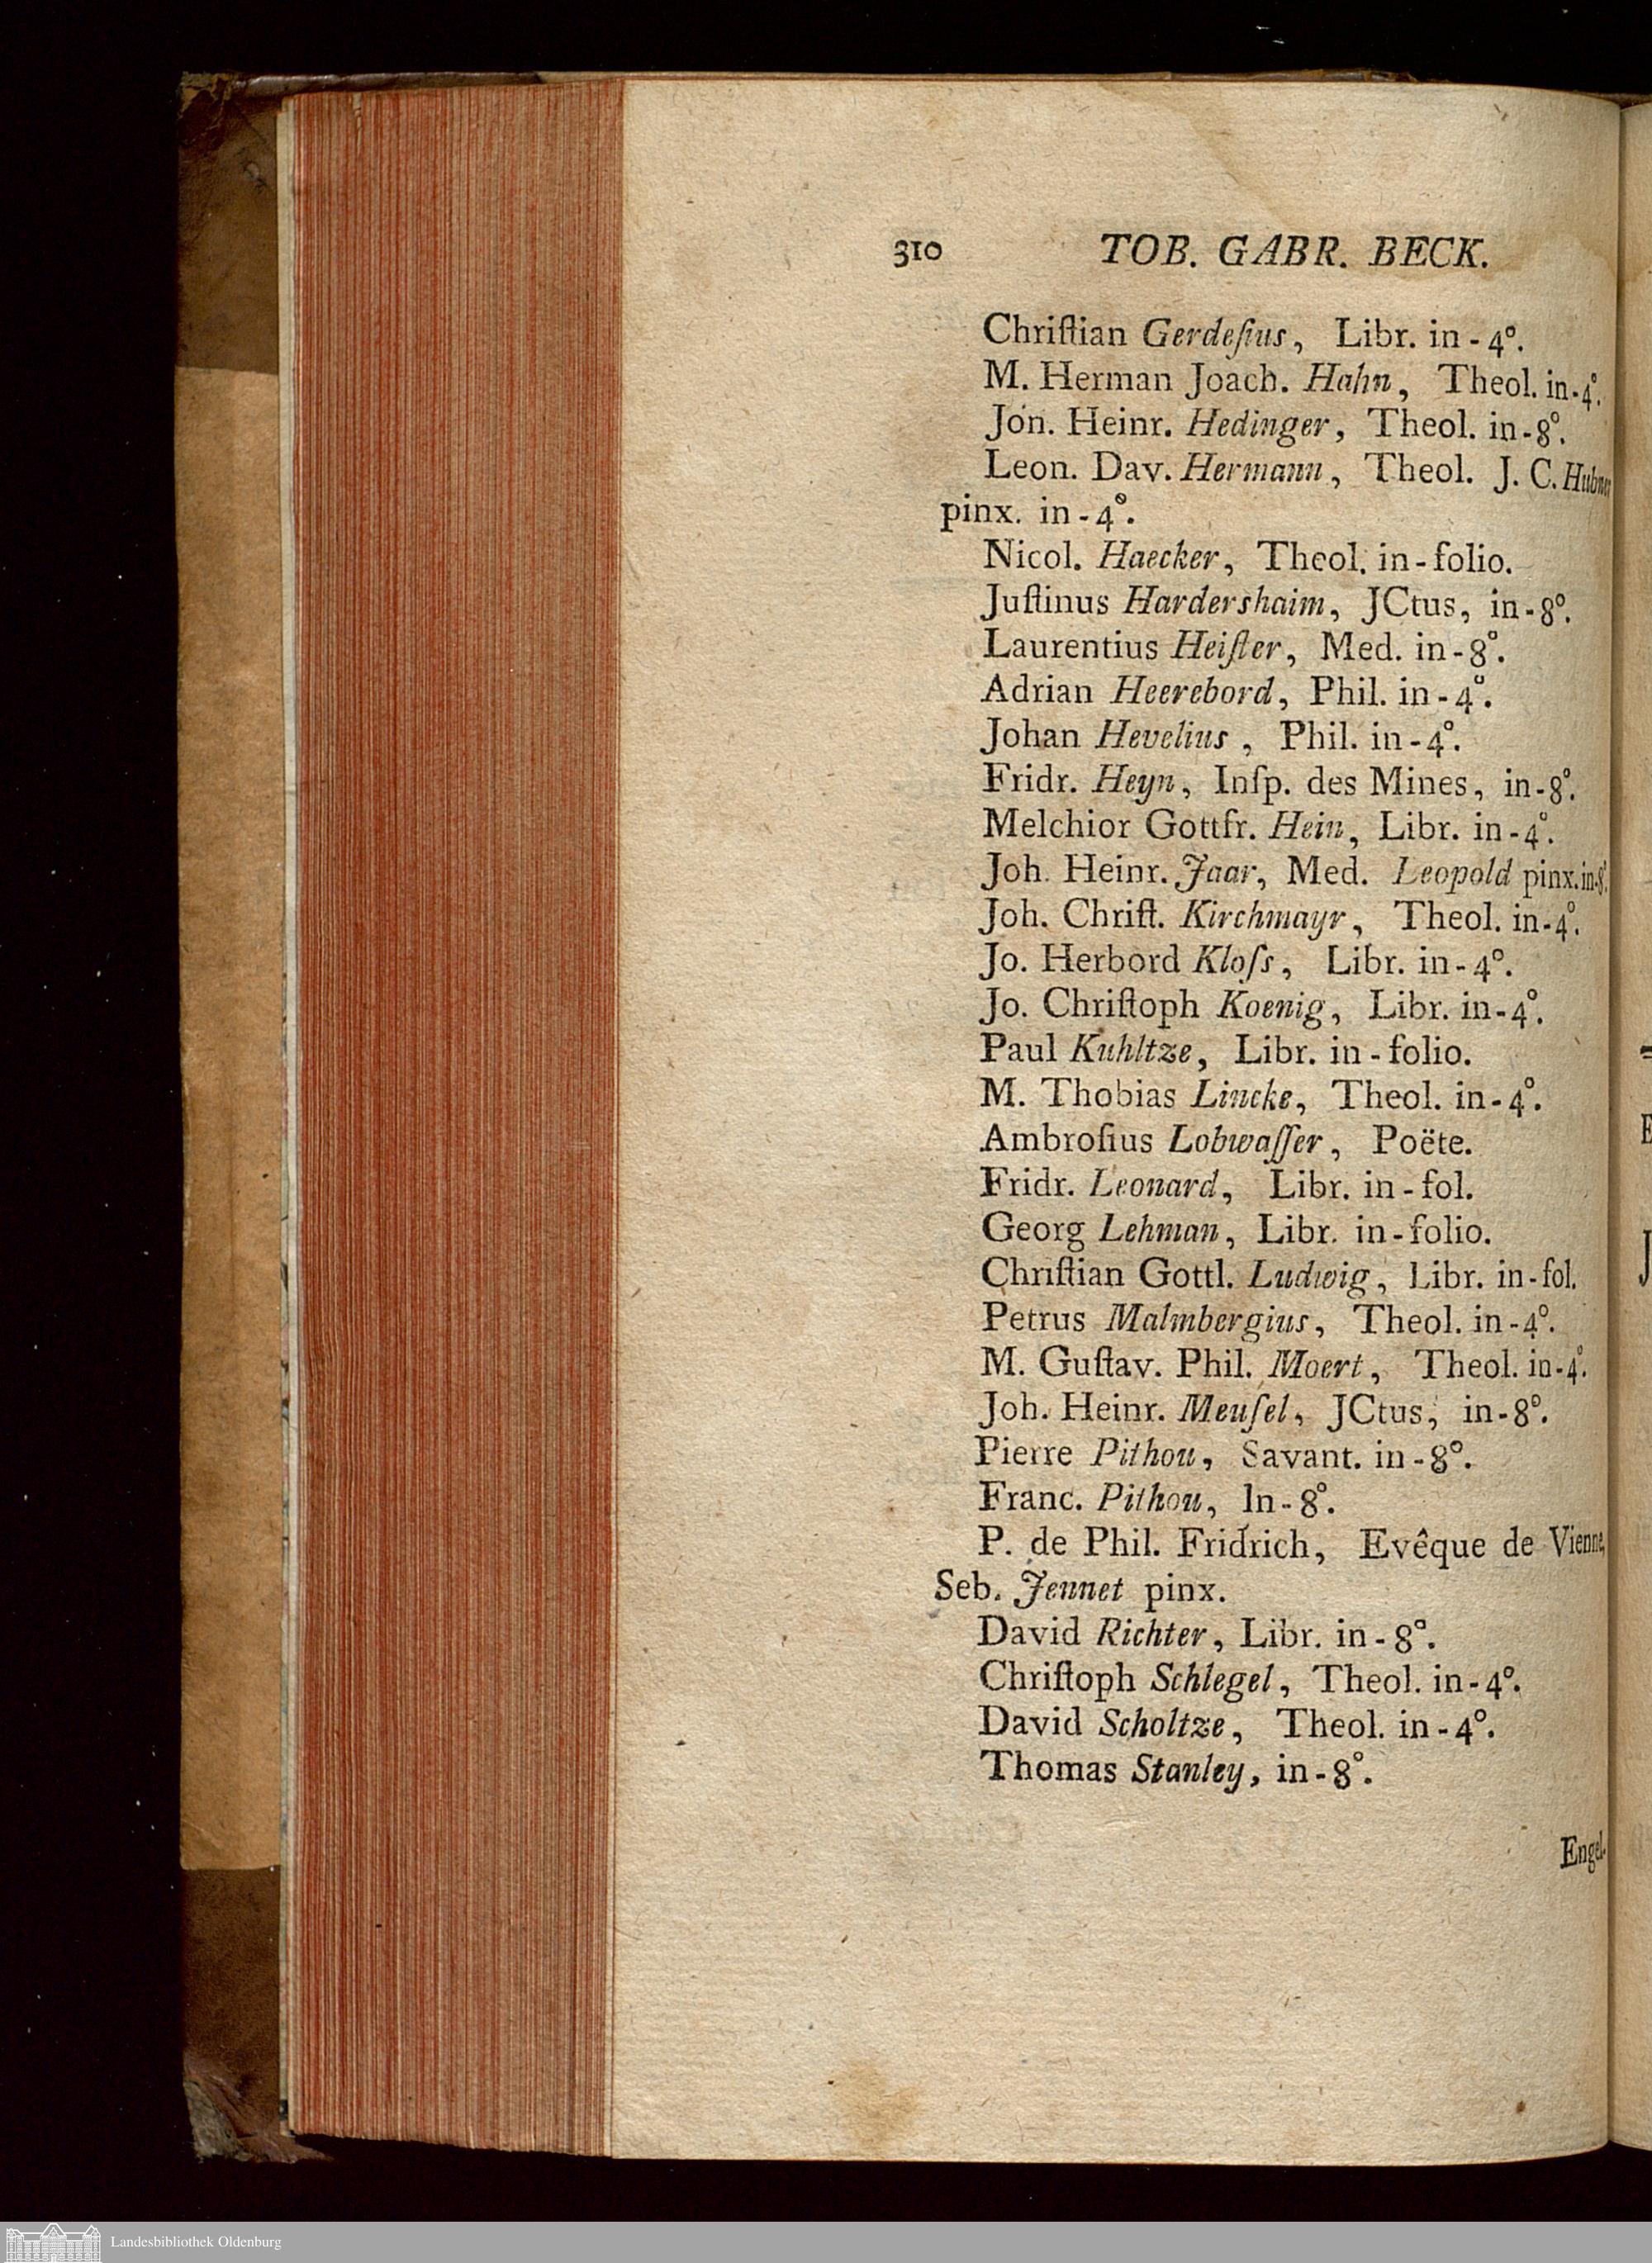 310 TOB. GABR. BECK.
Chriſtian Gerdeſius, Libr. in-4°.
M. Herman Joach. Hahn, Theol. in-4°.
Jon. Heinr. Hedinger, Theol. in-8°.
Leon. Dav. Hermann, Theol. J. C. Hubner
pinx. in-4°.
Nicol. Haecker, Theol. in-folio.
Juſtinus Hardershaim, JCtus, in-8°.
Laurentius Heiſter, Med. in-8°.
Adrian Heerebord, Phil. in-4°.
Johan Hevelius, Phil. in-4°.
Fridr. Heyn, Inſp. des Mines, in-8°.
Melchior Gottfr. Hein, Libr. in-4°.
Joh. Heinr. Jaar, Med. Leopold pinx. in-8°.
Joh. Chriſt. Kirchmayr, Theol. in-4°.
Jo. Herbord Kloſs, Libr. in-4°.
Jo. Chriſtoph Koenig, Libr. in-4°.
Paul Kuhltze, Libr. in-folio.
M. Thobias Lincke, Theol. in-4°.
Ambroſius Lobwaſſer, Poëte.
Fridr. Leonard, Libr. in-fol.
Georg Lehman, Libr. in-folio.
Chriſtian Gottl. Ludwig, Libr. in-fol.
Petrus Malmbergius, Theol. in-4°.
M. Guſtav. Phil. Moert, Theol. in-4°.
Joh. Heinr. Meuſel, JCtus, in-8°.
Pierre Pithou, Savant. in-8°.
Franc. Pithou, In-8°.
P. de Phil. Fridrich, Evêque de Vienne,
Seb. Jennet pinx.
David Richter, Libr. in-8°.
Chriſtoph Schlegel, Theol. in-4°.
David Scholtze, Theol. in-4°.
Thomas Stanley, in-8°.
Engel-
Landesbibliothek Oldenburg